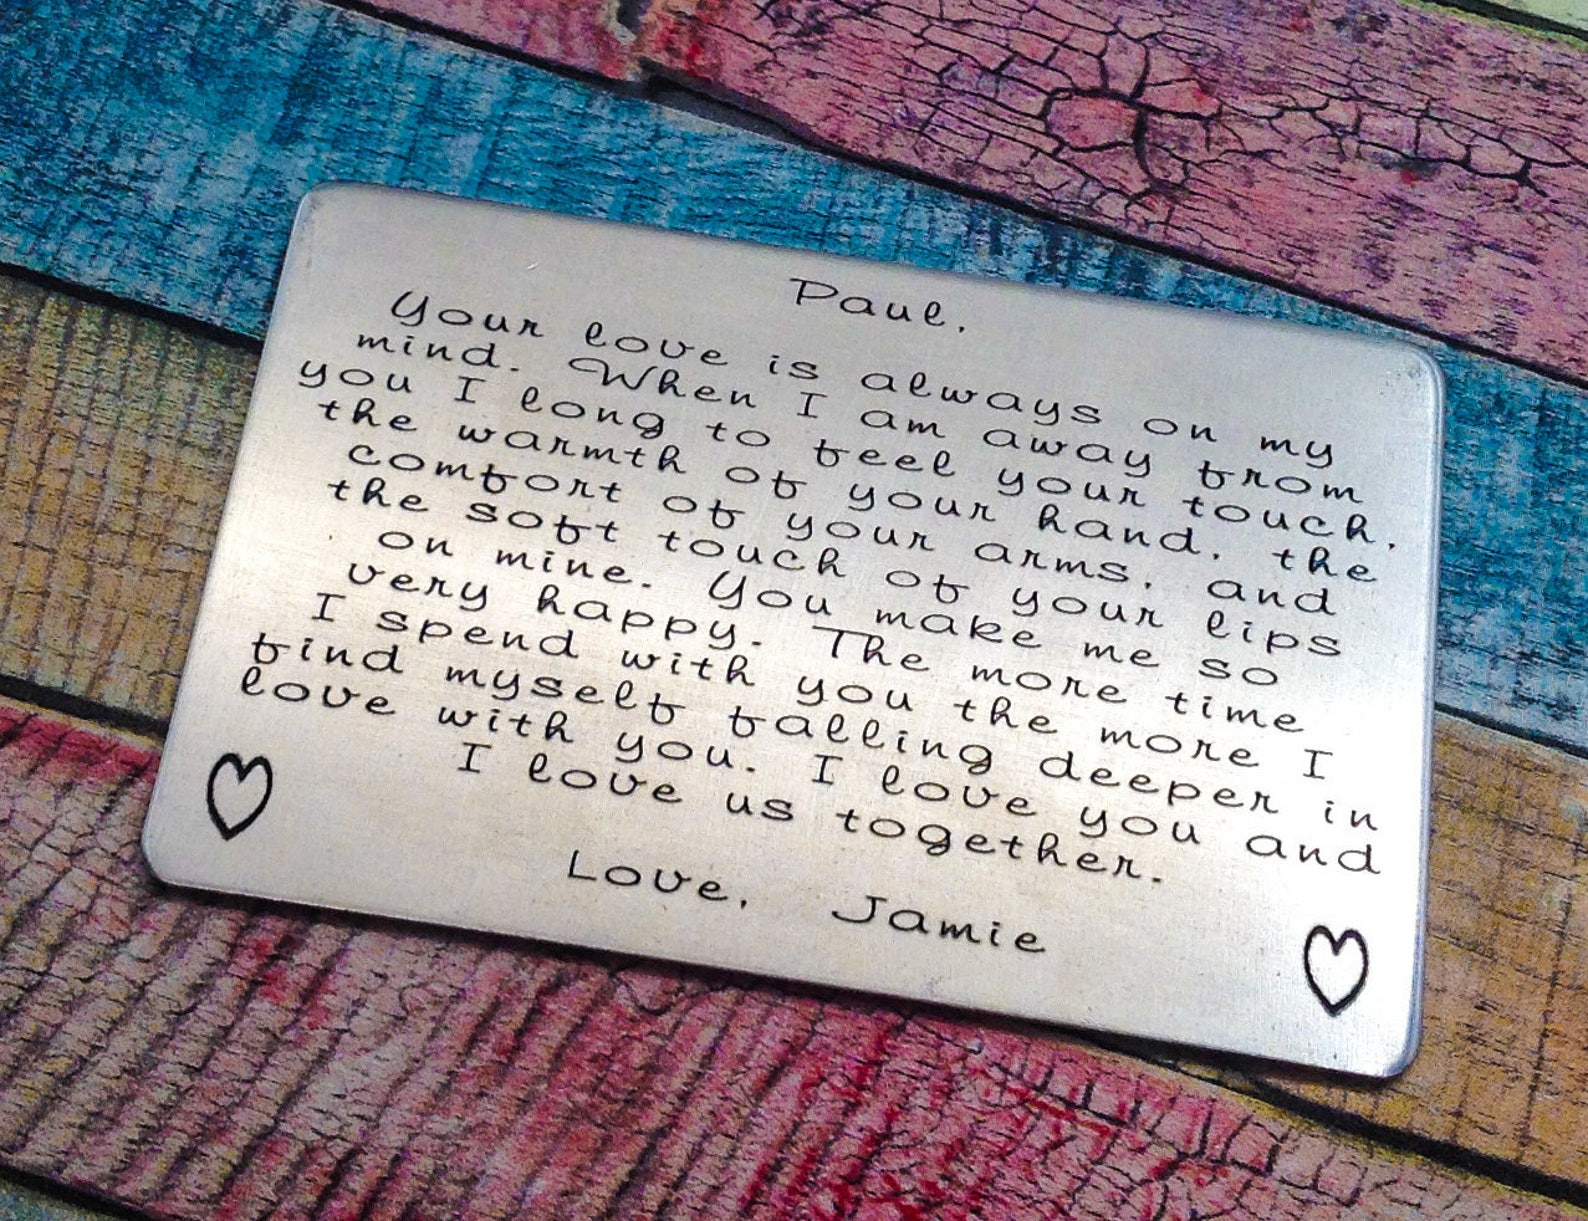 Paul,
Your love is always on my
mind. When I am away from
you I long to feel your touch,
the warmth of your hand, the
comfort of your arms, and
the soft touch of your lips
on mine. You make me so
very happy. The more time
I spend with you the more I
find myself falling deeper in
love with you. I love you and
I love us together.
Love, Jamie